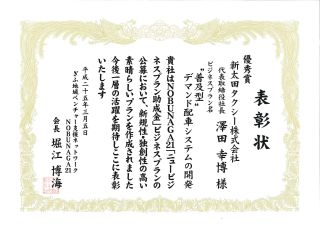 表彰状
優秀賞
新太田タクシー株式会社
代表取締役社長 澤田 幸博 様
ビジネスプラン名
“普及型”
デマンド配車システムの開発
貴社はNOBUNAGA21「ニュービジ
ネスプラン助成金」ビジネスプランの
公募において、新規性・独創性の高い
素晴らしいプランを作成されました
今後一層の活躍を期待しここに表彰
いたします
平成二十五年三月五日
ぎふ地域ベンチャー支援ネットワーク
NOBUNAGA21
会長 堀江 博海